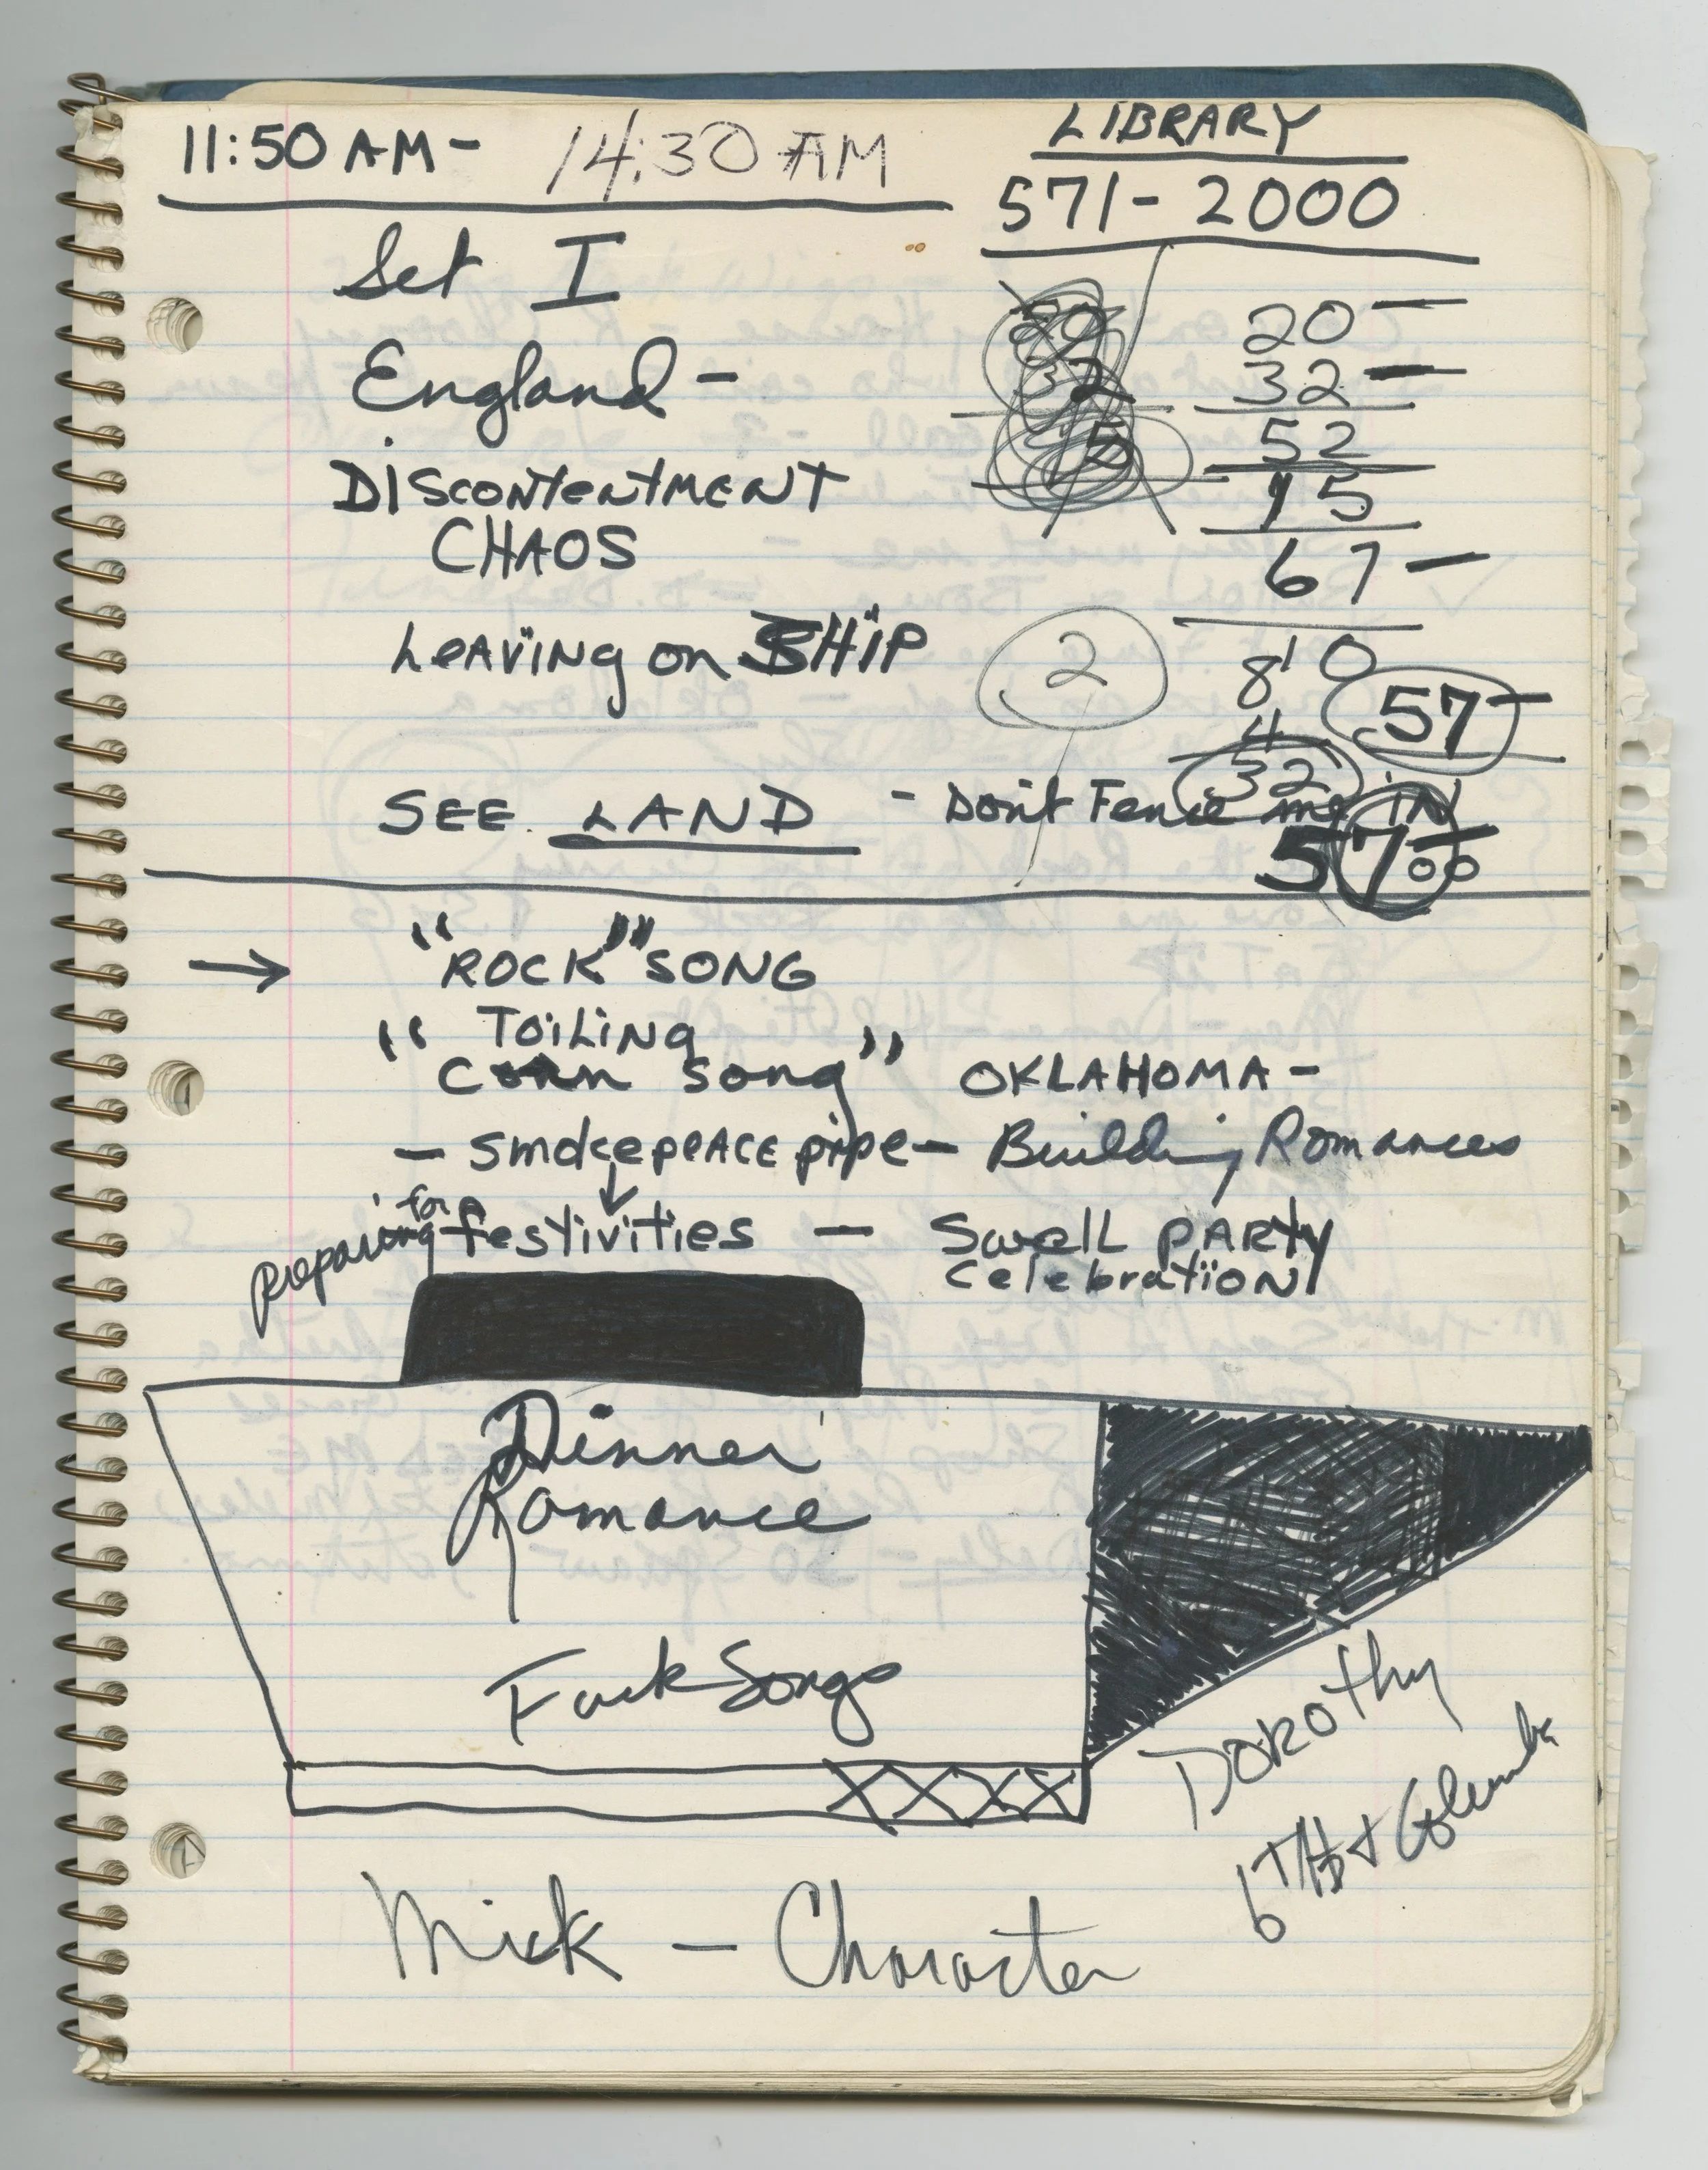 11:50 AM - 14:30 AM
LIBRARY
571-2000
Set I
England -
DISCONTENTMENT
CHAOS
LEAVING on SHIP
SEE LAND - Don't Fence me IN
20 -
32 -
52
15
67 -
2
8'0
4
57 -
32
57 00
→ "ROCK" SONG
" TOILING
CORN SONG" OKLAHOMA -
- Smoke PEACE pipe - Building Romances
↓
preparing for festivities - Swell PARTY
Celebration
Dinner
Romance
Fuck Songs
XXXX
DOROTHY
6TH +
Mick - Character